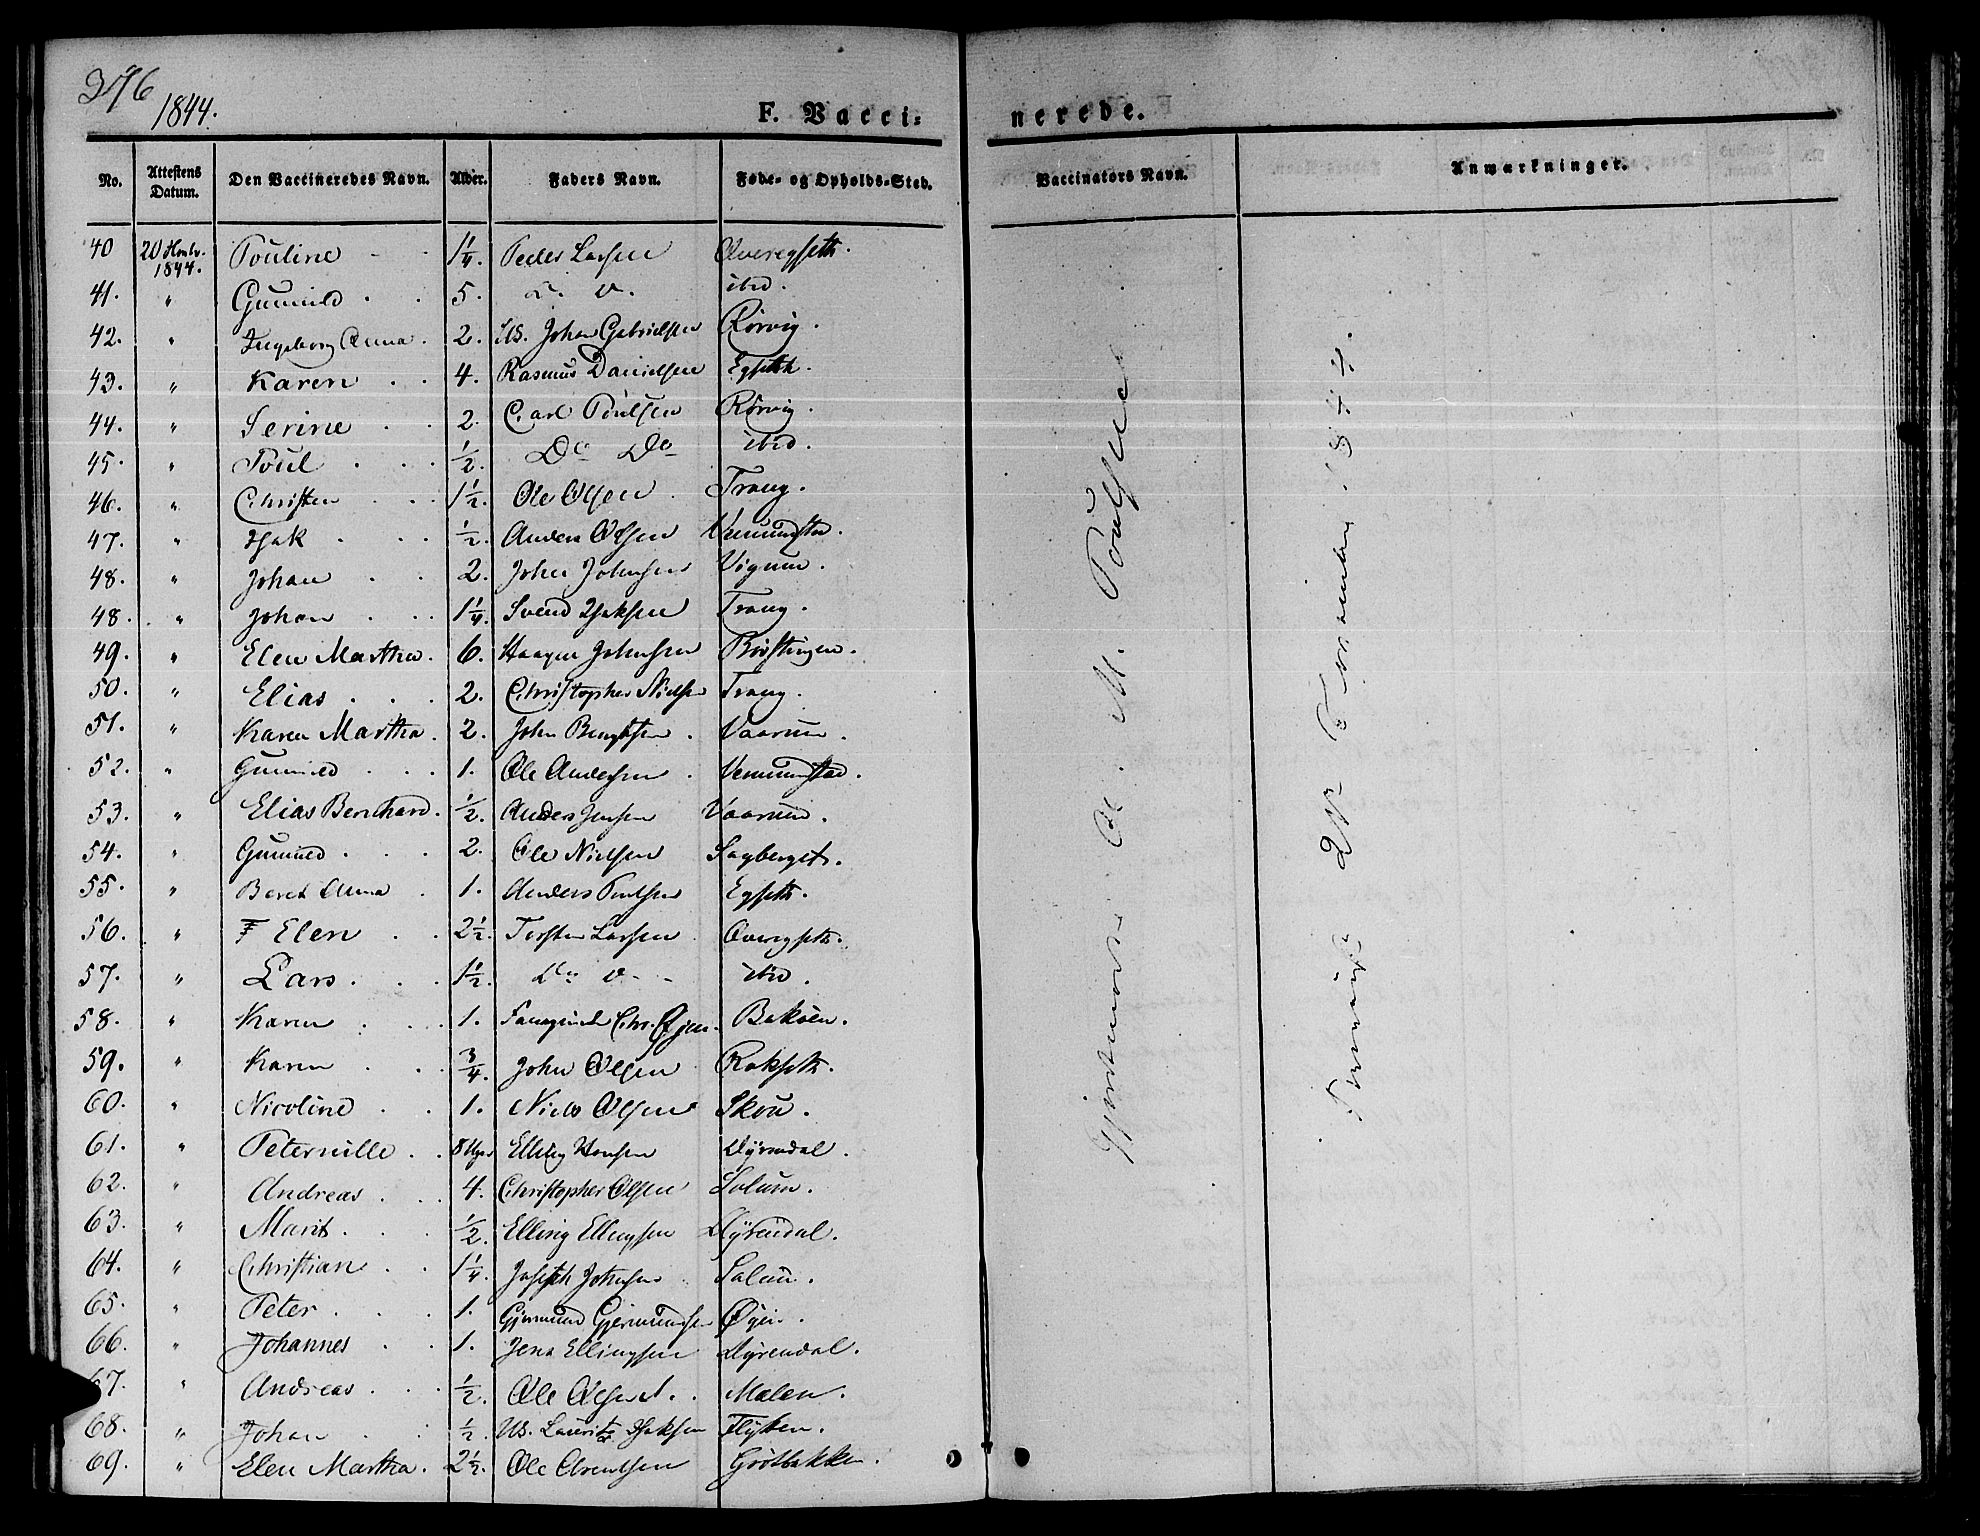 376
1844.
F. Vaccinerede.
No. Attestens Datum. Den Vaccineredes Navn. Alder. Faders Navn. Føde- og Opholds-Sted. Vaccinators Navn. Anmærkninger.
40 20 1844. Pouline 1¼. Peder Larsen Overegseth.
41. " Gunnild 5. D. o. ibid.
42. " Ingeborg Anna. 2. Johan Gabrielsen Rörvig.
43. " Karen 4. Rasmus Danielsen Egseth.
44. " Serine 2. Carl Poulsen Rörvig.
45. " Poul ½. Do Do ibid.
46. " Christen 1½. Ole Olsen Trang.
47. " Isak ½. Anders Olsen Vemundstad.
48. " Johan 2. John Johnsen
48. " Johan 1¼. Svend Isaksen Trang.
49. " Elen Martha. 6. Haagen Johnsen
50. " Elias 2. Christopher Nielsen Trang.
51. " Karen Martha. 2. John Bengtsen. Vaarum.
52. " Gunnild 1. Ole Andersen Vemundstad.
53. " Elias Bernhard. ½. Anders Jensen Vaarum.
54. " Gunnild 2. Ole Nielsen Sagberget.
55. " Beret Anna 1. Anders Poulsen Egseth.
56. " Elen 2½. Torsten Larsen Overegseth.
57. " Lars. 1½. Do o ibid.
58. " Karen 1. Chr.
59. " Karen ¾. John Olsen Rakseth.
60. " Nicoline 1. Niels Olsen
61. " Peternille. 8 Uger Elling Hansen Dÿrendal.
62. " Andreas 4. Christopher Olsen Solum.
63. " Marit ½. Elling Ellingsen Dÿrendal.
64. " Christian 1¼. Joseph Johnsen Solum.
65. " Peter 1. Gjermund Gjermundsen Øÿen.
66. " Johannes 1. Jens Ellingsen Dÿrendal.
67. " Andreas ½. Ole Olsen Malen.
68. " Johan ½. Lauritz Isaksen
69. " Elen Martha. 2½. Ole Arentsen Grötbakken.
A. M. Poulsen
1844.